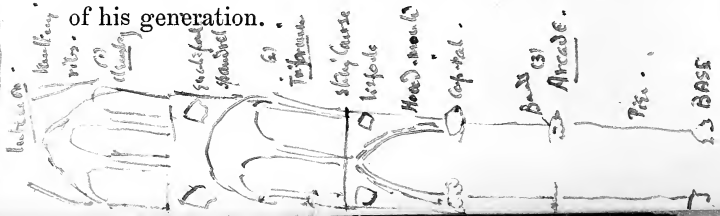 of his generation.
Vaulting
ribs.
(1)
Spandrel
(2)
Triforium
String Course
Hood-mould
Capital.
Band
(3)
Arcade.
Pier.
BASE